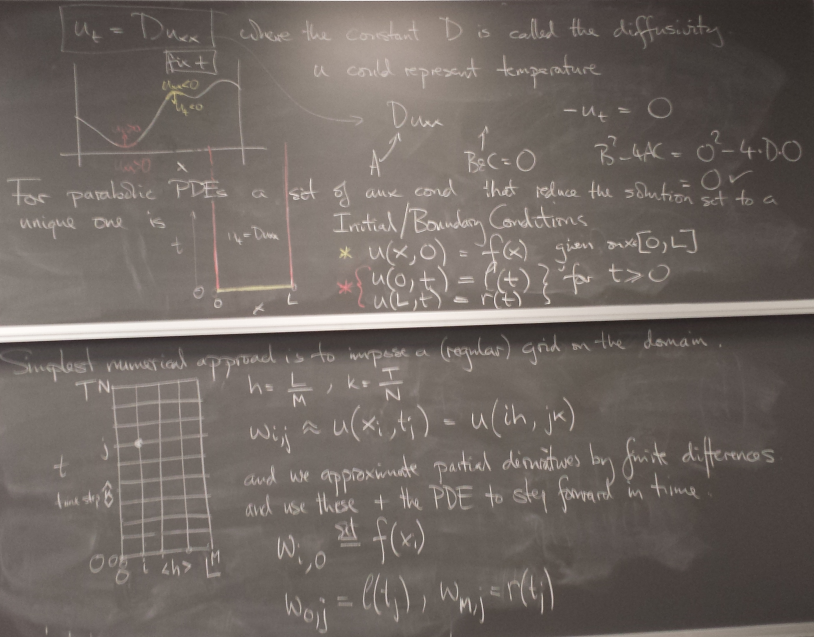 u_t = Du_xx where the constant D is called the diffusivity.
Fix t
u could represent temperature
u_xx<0
u_t<0
u_xx>0
x
Du_xx - u_t = 0
A B&C=0 B²-4AC = 0²-4·D·0
= 0 ✓
For parabolic PDEs a set of aux cond that reduce the solution set to a
unique one is
Initial/Boundary Conditions
t u_t=Du_xx
* u(x,0) = f(x) given on x∈[0,L]
* { u(0,t) = l(t) } for t≥0
u(L,t) = r(t)
0 0 x L
Simplest numerical approach is to impose a (regular) grid on the domain.
T N
h = L/M , k = T/N
w_i,j ≈ u(x_i,t_j) = u(ih, jk)
j
t
and we approximate partial derivatives by finite differences
time step
and use these + the PDE to step forward in time.
w_i,0 set= f(x_i)
0 0 0 0 i <h> L M
w_0,j = l(t_j), w_M,j = r(t_j)